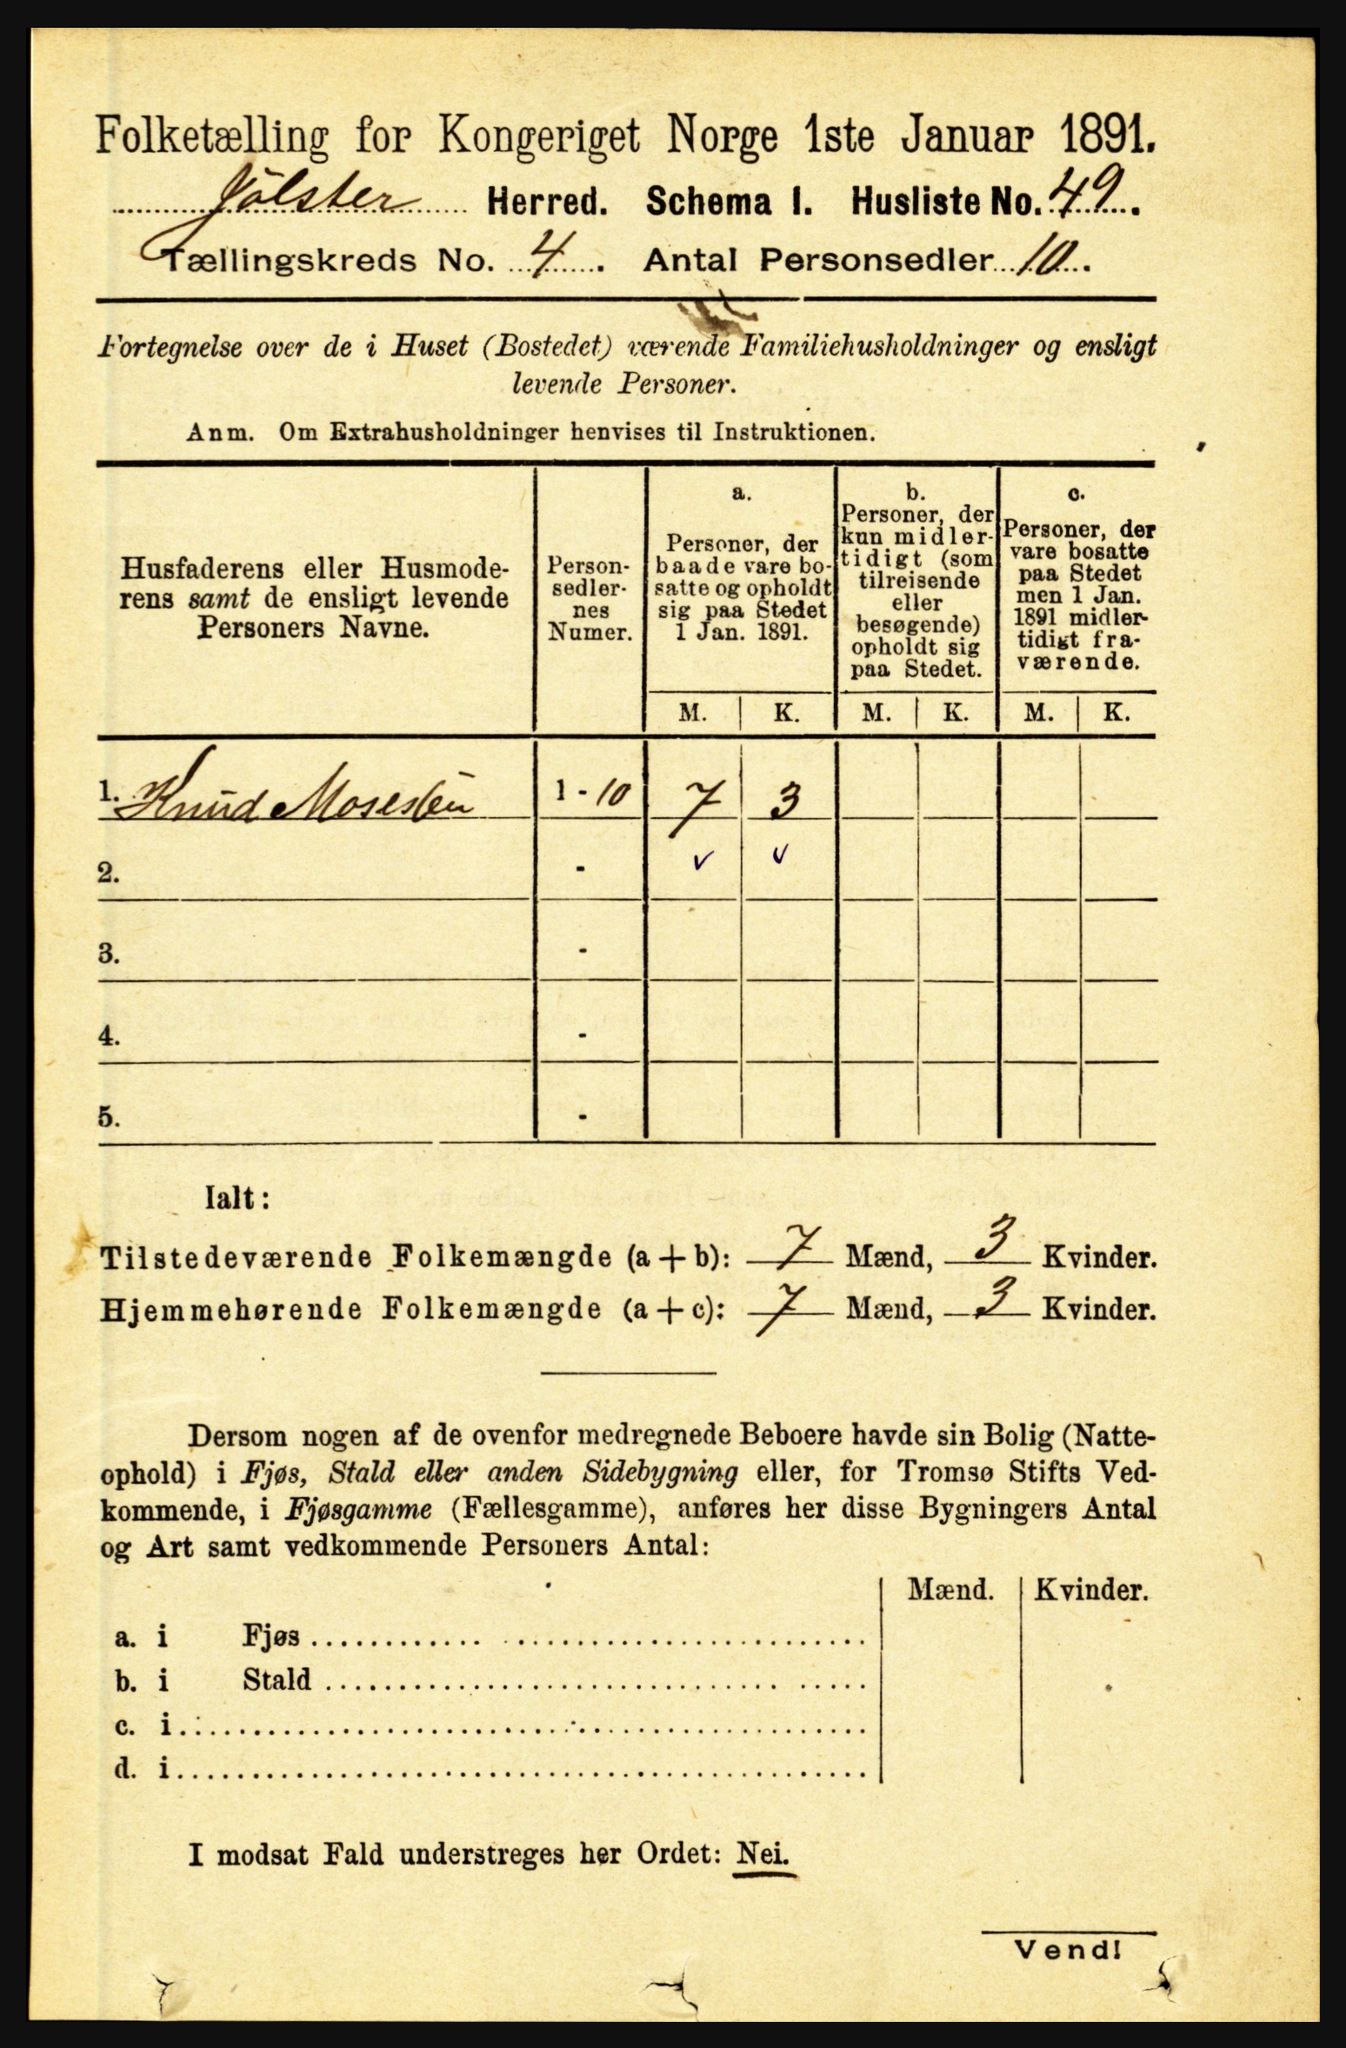 Folketælling for Kongeriget Norge 1ste Januar 1891.
Jölster Herred. Schema I. Husliste No. 49.
Tællingskreds No. 4. Antal Personsedler 10.
Fortegnelse over de i Huset (Bostedet) værende Familiehusholdninger og ensligt
levende Personer.
Anm. Om Extrahusholdninger henvises til Instruktionen.
Husfaderens eller Husmode-
rens samt de ensligt levende
Personers Navne.
Person-
sedler-
nes
Numer.
a.
Personer, der
baade vare bo-
satte og opholdt
sig paa Stedet
1 Jan. 1891.
b.
Personer, der
kun midler-
tidigt (som
tilreisende
eller
besøgende)
opholdt sig
paa Stedet.
c.
Personer, der
vare bosatte
paa Stedet
men 1 Jan.
1891 midler-
tidigt fra-
værende.
M. K. M. K. M. K.
1. Knud Mosessen 1 - 10 7 3
2. - v v
3. -
4. -
5. -
Ialt:
Tilstedeværende Folkemængde (a + b): 7 Mænd, 3 Kvinder.
Hjemmehørende Folkemængde (a + c): 7 Mænd, 3 Kvinder.
Dersom nogen af de ovenfor medregnede Beboere havde sin Bolig (Natte-
ophold) i Fjøs, Stald eller anden Sidebygning eller, for Tromsø Stifts Ved-
kommende, i Fjøsgamme (Fællesgamme), anføres her disse Bygningers Antal
og Art samt vedkommende Personers Antal:
Mænd. Kvinder.
a. i Fjøs
b. i Stald
c. i
d. i
I modsat Fald understreges her Ordet: Nei.
Vend!